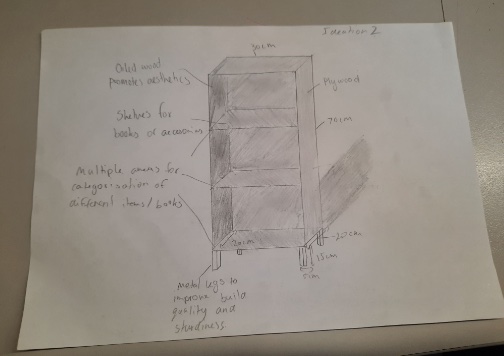 Ideation 2
30cm
Oiled wood
promotes aesthetics
Plywood
Shelves for
books or accessories
70cm
Multiple areas for
categorisation of
different items/books
20cm
15cm
Metal legs to
improve build
quality and
sturdiness